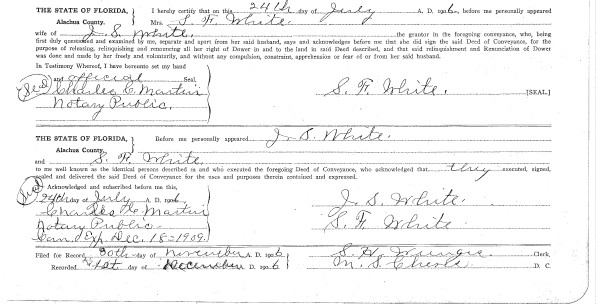 THE STATE OF FLORIDA, I hereby certify that on this 24th day of July A. D. 1906, before me personally appeared
Alachua County. Mrs. S. F. White
wife of J. S. White, the grantor in the foregoing conveyance, who, being
first duly questioned and examined by me, separate and apart from her said husband, says and acknowledges before me that she did sign the said Deed of Conveyance, for the
purpose of releasing, relinquishing and renouncing all her right of Dower in and to the land in said Deed described, and that said relinquishment and Renunciation of Dower
was done and made by her freely and voluntarily, and without any compulsion, constraint, apprehension or fear of or from her said husband.
In Testimony Whereof, I have hereunto set my hand
and official Seal.
(Seal) Charles C. Martin S. F. White. [SEAL]
Notary Public.
THE STATE OF FLORIDA, Before me personally appeared J. S. White.
Alachua County.
and S. F. White.
to me well known as the identical persons described in and who executed the foregoing Deed of Conveyance, who acknowledged that they executed, signed,
sealed and delivered the said Deed of Conveyance for the uses and purposes therein contained and expressed.
(Seal) Acknowledged and subscribed before me this,
24th day of July A. D. 1906 J. S. White.
Charles C. Martin
Notary Public. S. F. White
Com. Exp. Dec. 18-1909.
Filed for Record 30th day of November A. D. 1906 S. H. Clerk,
Recorded 1st day of December A. D. 1906 M. S. D. C.